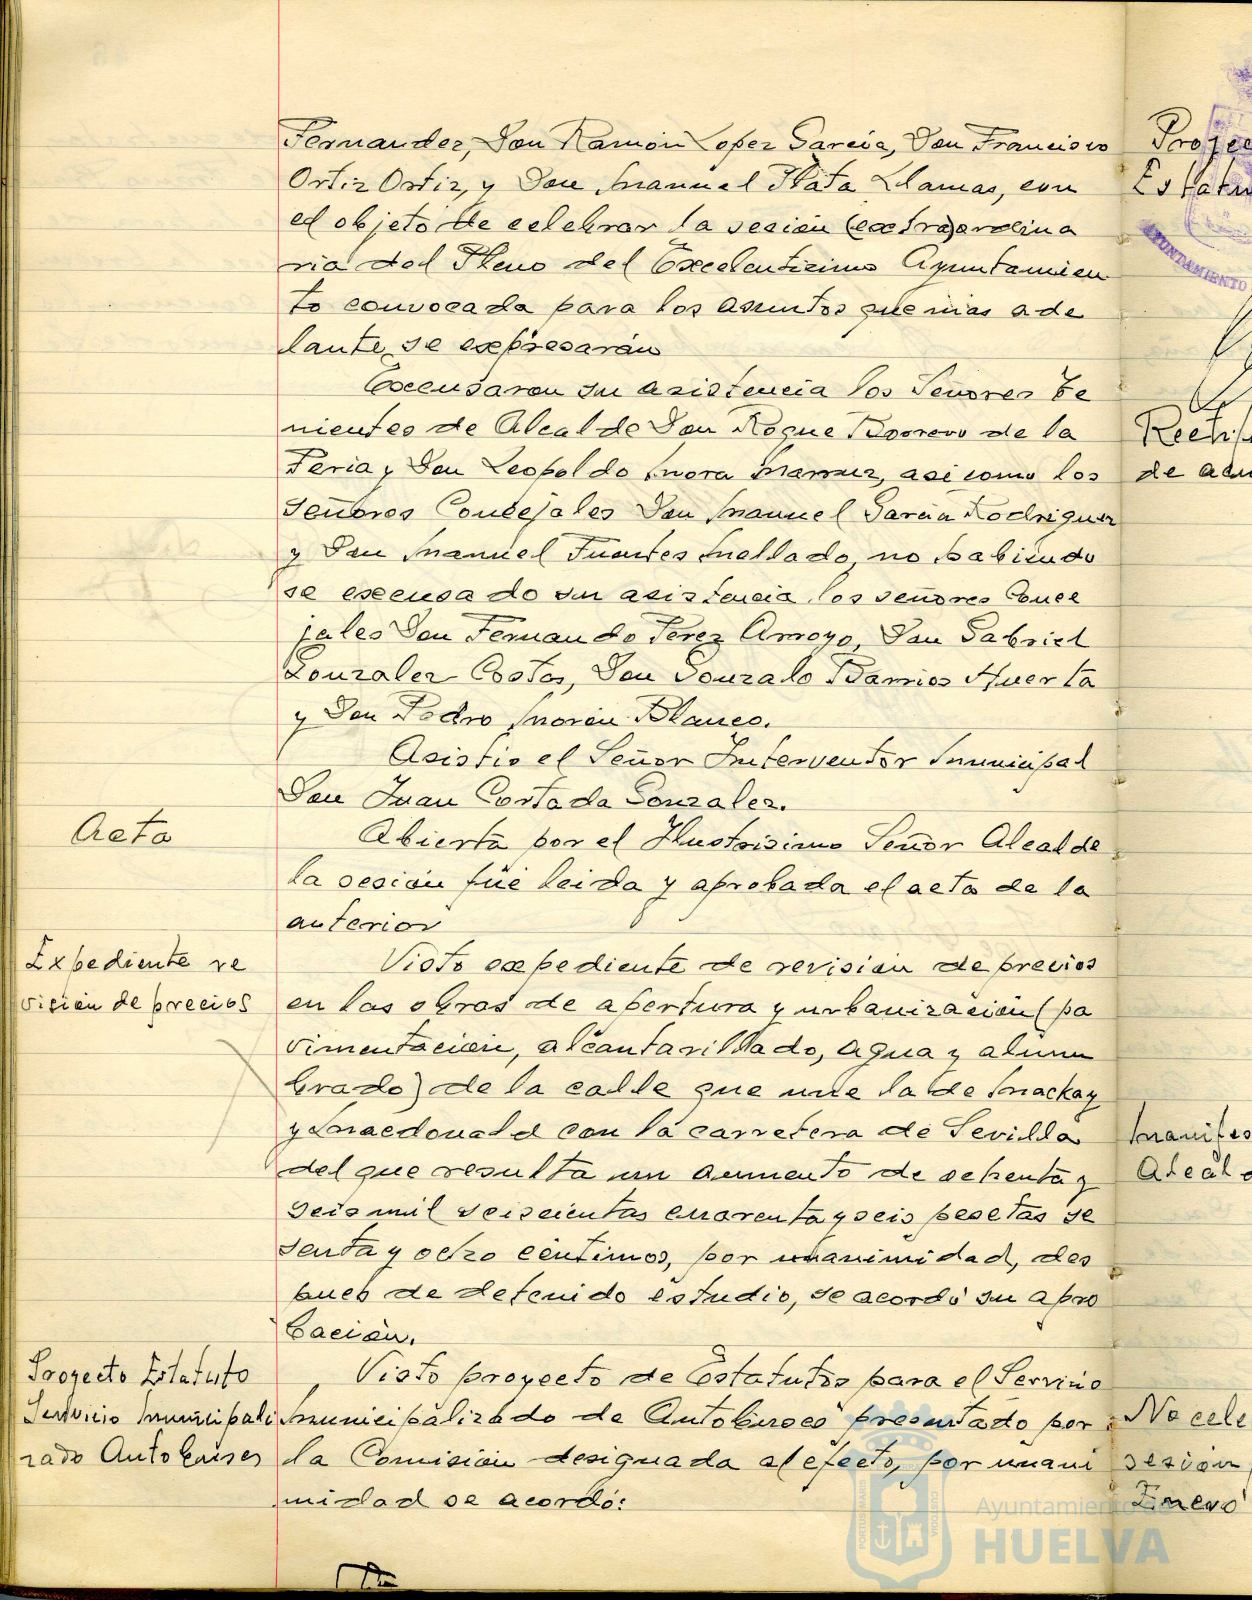 Fernandez, Don Ramón Lopez García, Don Francisco
Ortiz Ortiz, y Don Manuel Plata Llamas, con
el objeto de celebrar la sesión (extra)ordina
ria del Pleno del Excelentisimo Ayuntamien
to convocada para los asuntos que mas ade
lante, se expresarán
Excusaron su asistencia los Señores Te
nientes de Alcalde Don Roque Borrero de la
Feria y Don Leopoldo Mora asi como los
señores Concejales Don Manuel Garcia Rodriguez
y Don Manuel Fuentes Mellado, no habiendo
se excusado su asistencia los señores Conce
jales Don Fernando Perez Arroyo, Don Gabriel
Gonzalez Costas, Don Gonzalo Barrios Huerta
y Don Pedro Morón Blanco.
Asistio el Señor Interventor Municipal
Don Juan Cortada Gonzalez.
Acta
Abierta por el Ilustrisimo Señor Alcalde
la sesión fué leida y aprobada el acta de la
anterior
Expediente re
visión de precios
Visto expediente de revisión de precios
en las obras de apertura y urbanización (pa
vimentación, alcantarillado, agua y alum
brado) de la calle que une la de Mackay
y Macdonald con la carretera de Sevilla
del que resulta un aumento de ochenta y
seis mil seiscientas cuarenta y seis pesetas se
senta y ocho centimos, por unanimidad, des
pues de detenido estudio, se acordó su apro
bación.
Proyecto Estatuto
Servicio Municipali
zado Autobuses
Visto proyecto de Estatutos para el Servicio
Municipalizado de Autobuses presentado por
la Comisión designada al efecto, por unani
midad se acordó:
Proyec
Estatu
AYUNTAMIENTO
Rectif
de acu
Manifes
Alcald
No cele
sesión
Enero
Ayuntamiento de
HUELVA
PORTUS MARIS
CUSTODIA